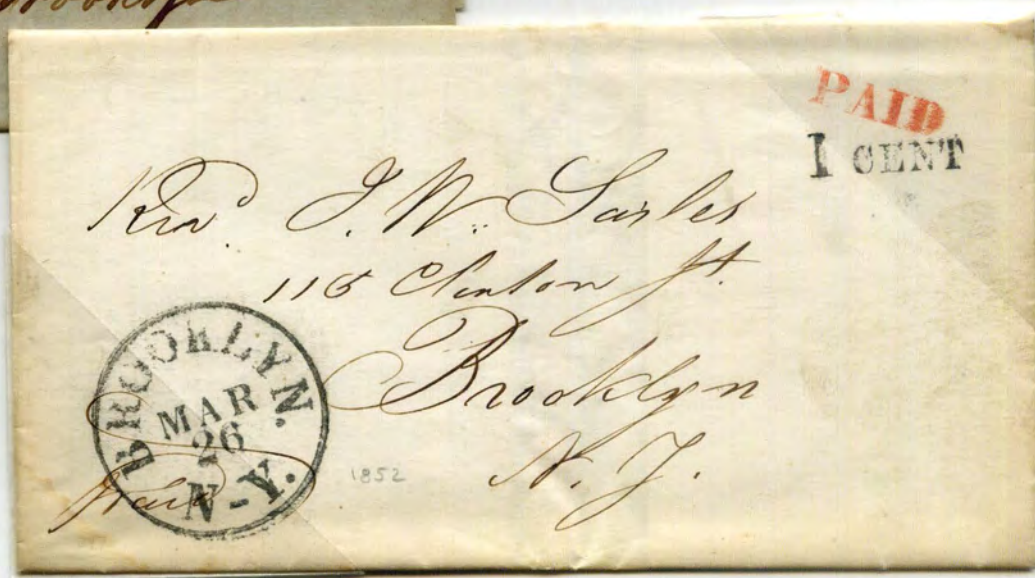 Brooklyn
PAID
1 CENT
Revd. J. W. Sarles
115 Clinton St.
Brooklyn
N. Y.
BROOKLYN.
MAR
26
N-Y.
Paid
1852